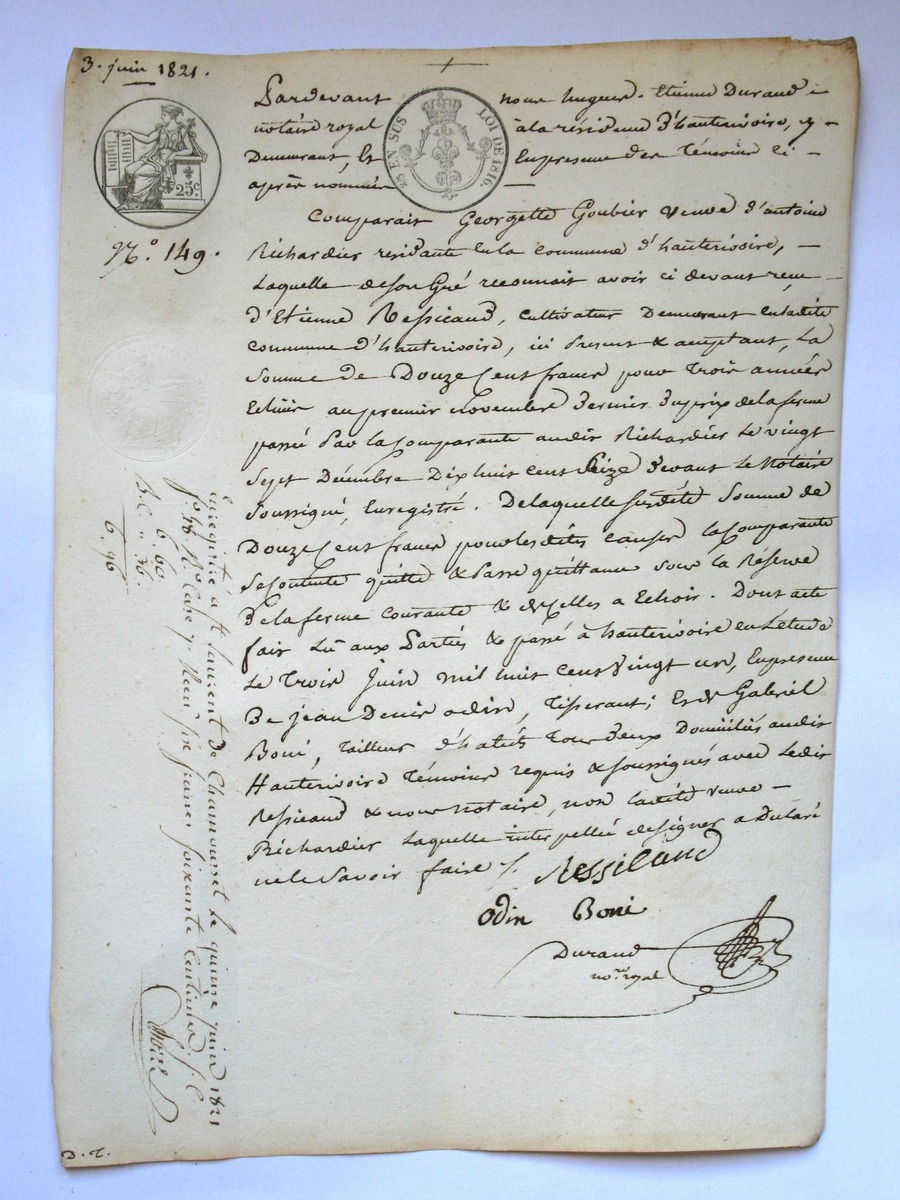 3. juin 1821.
25 EN SUS
LOI DE 1816.
25c.
Pardevant nous hugues-Etienne Durand
notaire royal à la résidence d'hauterivoire, y
Demeurant, Et En presence des Témoins ci-
après nommés
Comparait Georgette Goubier veuve d'antoine
Richardier residante En la commune d'hauterivoire,
Laquelle de son Gré reconnait avoir ci devant recu
d'Etienne Ressicaud, cultivateur Demeurant en ladite
commune d'hauterivoire, ici Present & acceptant, La
Somme de Douze Cent francs pour trois années
Echues au premier novembre dernier du prix de la ferme
passé Par la Comparante audit Richardier Le vingt
Sept Décembre Dix huit cent Seize devant Le Notaire
Soussigné, Enregistré. De laquelle susdite Somme de
Douze Cent francs pour les dites causes la Comparante
Se contente quitte & Passe quittance sous la Réserve
de la ferme courante & de celles a Echoir. Dont acte
fait Lu aux Parties & passé à hauterivoire en L'étude
Le Trois Juin mil huit cent vingt un, En presence
de jean Denis odin, Tisserant; Et de Gabriel
Boni, Tailleur d'habits Tous deux Domiciliés audit
Hauterivoire Témoins requis & soussignés avec Ledit
Ressicaud & nous Notaire, non Ladite veuve
Richardier Laquelle interpellée de signer a Déclaré
ne le Savoir faire /.
Ressicaud
Odin Boni
Durand
nore. royal
No. 149.
enregistré à St. Laurent de Chamousset le quinze juin 1821
fo. 48 Ro. Case 7 Recu six francs soixante Centimes S. C.
6. 60
S. C. " 36.
6. 96
D. T.